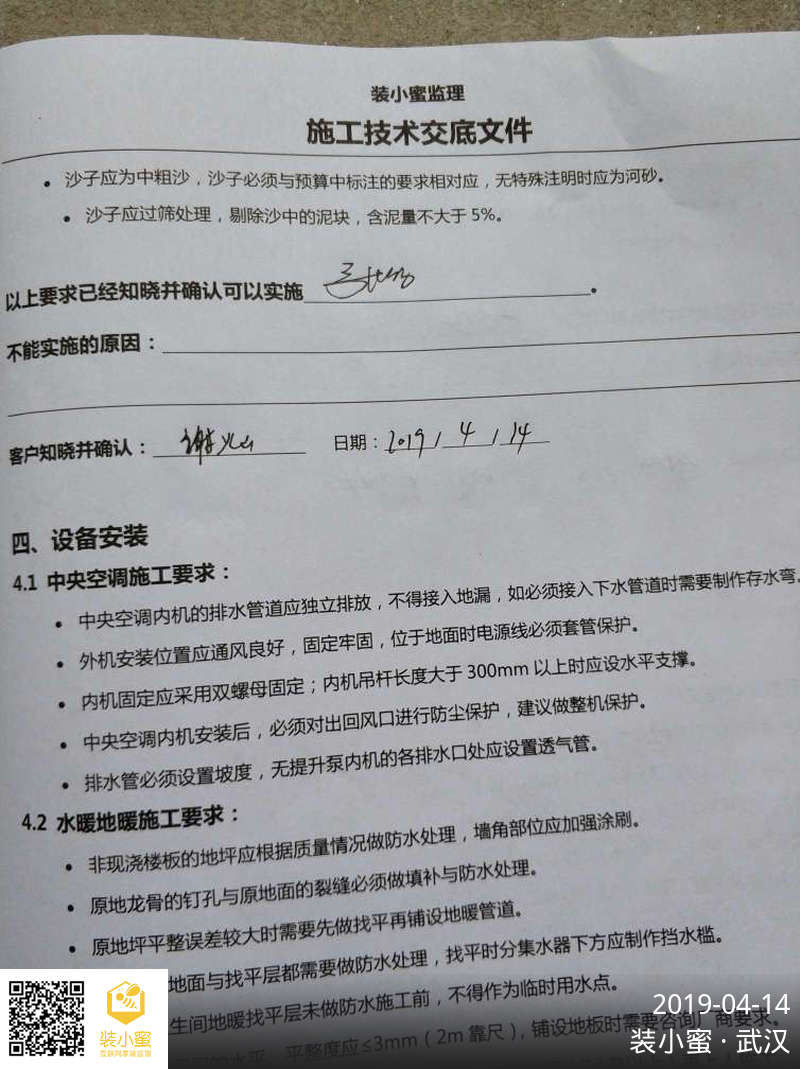 装小蜜监理
施工技术交底文件
• 沙子应为中粗沙，沙子必须与预算中标注的要求相对应，无特殊注明时应为河砂。
• 沙子应过筛处理，剔除沙中的泥块，含泥量不大于 5%。
以上要求已经知晓并确认可以实施
。
不能实施的原因：
客户知晓并确认： 日期：2019 / 4 / 14
四、设备安装
4.1 中央空调施工要求：
• 中央空调内机的排水管道应独立排放，不得接入地漏，如必须接入下水管道时需要制作存水弯。
• 外机安装位置应通风良好，固定牢固，位于地面时电源线必须套管保护。
• 内机固定应采用双螺母固定；内机吊杆长度大于 300mm 以上时应设水平支撑。
• 中央空调内机安装后，必须对出回风口进行防尘保护，建议做整机保护。
• 排水管必须设置坡度，无提升泵内机的各排水口处应设置透气管。
4.2 水暖地暖施工要求：
• 非现浇楼板的地坪应根据质量情况做防水处理，墙角部位应加强涂刷。
• 原地龙骨的钉孔与原地面的裂缝必须做填补与防水处理。
• 原地坪平整误差较大时需要先做找平再铺设地暖管道。
地面与找平层都需要做防水处理，找平时分集水器下方应制作挡水槛。
生间地暖找平层未做防水施工前，不得作为临时用水点。
平整度应≤3mm（2m 靠尺），铺设地板时需要咨询厂商要求。
装小蜜
互联网家装监理
2019-04-14
装小蜜·武汉